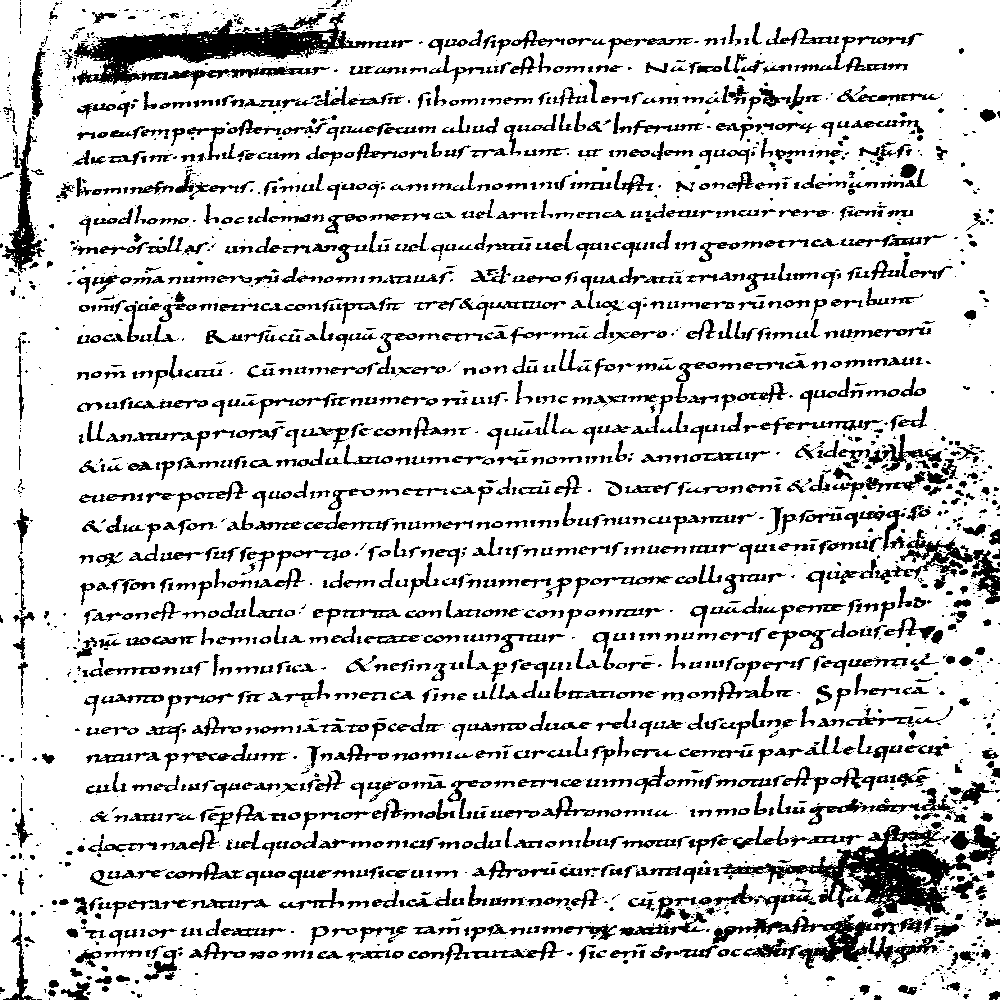 tolluntur · quodsiposteriora pereant · nihil destatuprioris
substantiaepermutatur · ut animalpriusesthomine · Nā sitollas animal statim
quoq; hominisnatura deletasit · sihominem sustuleris animal ñ peribit · &econtra
rioeasemperposteriorasunt quaesecum aliud quodlib& Inferunt · eapriora quaecum
dictasint · nihilsecum deposterioribustrahunt · ut ineodem quoq; homine · Nāsi
hominemdixeris · simul quoq; animalnominisintulisti · Nonestenī idemanimal
quodhomo · hocidemingeometrica velarithmetica videturincurrere · sienīnu
merostollas · undetriangulū vel quadratū vel quicquid ingeometricaversatur
quęomā numerorūdenominativast · Ad verosiquadratū triangulumq; sustuleris
omīsquegeometricaconsūptasit tres&quattuor alioꝝ q; numerorūnonperibunt
vocabula · Rursūcūaliquāgeometricāformā dixero · estillissimul numerorū
nom̄ inplicitū · Cūnumerosdixero · nondū ullāformā geometricānominavi ·
musicavero quāpriorsitnumerorūvis · hincmaximeꝓbaripotest · quodn̄modo
illanaturapriorasunt quæꝑseconstant · quāilla quæadaliquidreferuntur · sed
&iā eaipsamusica modulationumerorūnominib; annotatur · &ideminhac
evenirepotest quodingeometricap̄dictūest · Diatessaronenī &diapente
&diapason · abantecedentisnumerinominibusnuncupantur · Ipsorūquoq; so
noꝝ adversusseꝓportio · solisneq; aliisnumerisinvenitur quienīsonusIndia
passonsimphoniaest · idemduplicisnumeriꝓportione colligitur · Quædiates
saronestmodulatio · epitrita conlatione conponitur · Quādiapentesinpho
niā vocant hemiolia medietateconiungitur · Quiinnumerisepogdousest
idemtonus Inmusica · &nesingulaꝑsequilaborē · huiusoperis sequentia
quantoprior sit arithmetica sine ulladubitatione monstrabit · Sphericā
vero atq; astronomiātātop̄cedit quantoduae reliquæ disciplinę hanctertiā
natura precedunt · Inastronomiaenī circulispheracentrū paralleliquecir
culi mediusqueaxisest quęomā geometricęuimqdomīsmotusestpostquiete
&natura sēꝑstatioprior estmobiliūveroastronomia · inmobiliūgeometrica
doctrinaest vel quodarmonicismodulationibusmotusipsecelebratur astro
Quareconstatquoquemusicevim · astrorūcursusantiquitate
superarenatura arithmeticādubiumnonest · cū prior
tiquiorvideatur · Proprię tam̄ipsanumeroꝝ natura ·
omnisq; astronomica ratio constitutaest · sicenī ortus occasusq; colligim